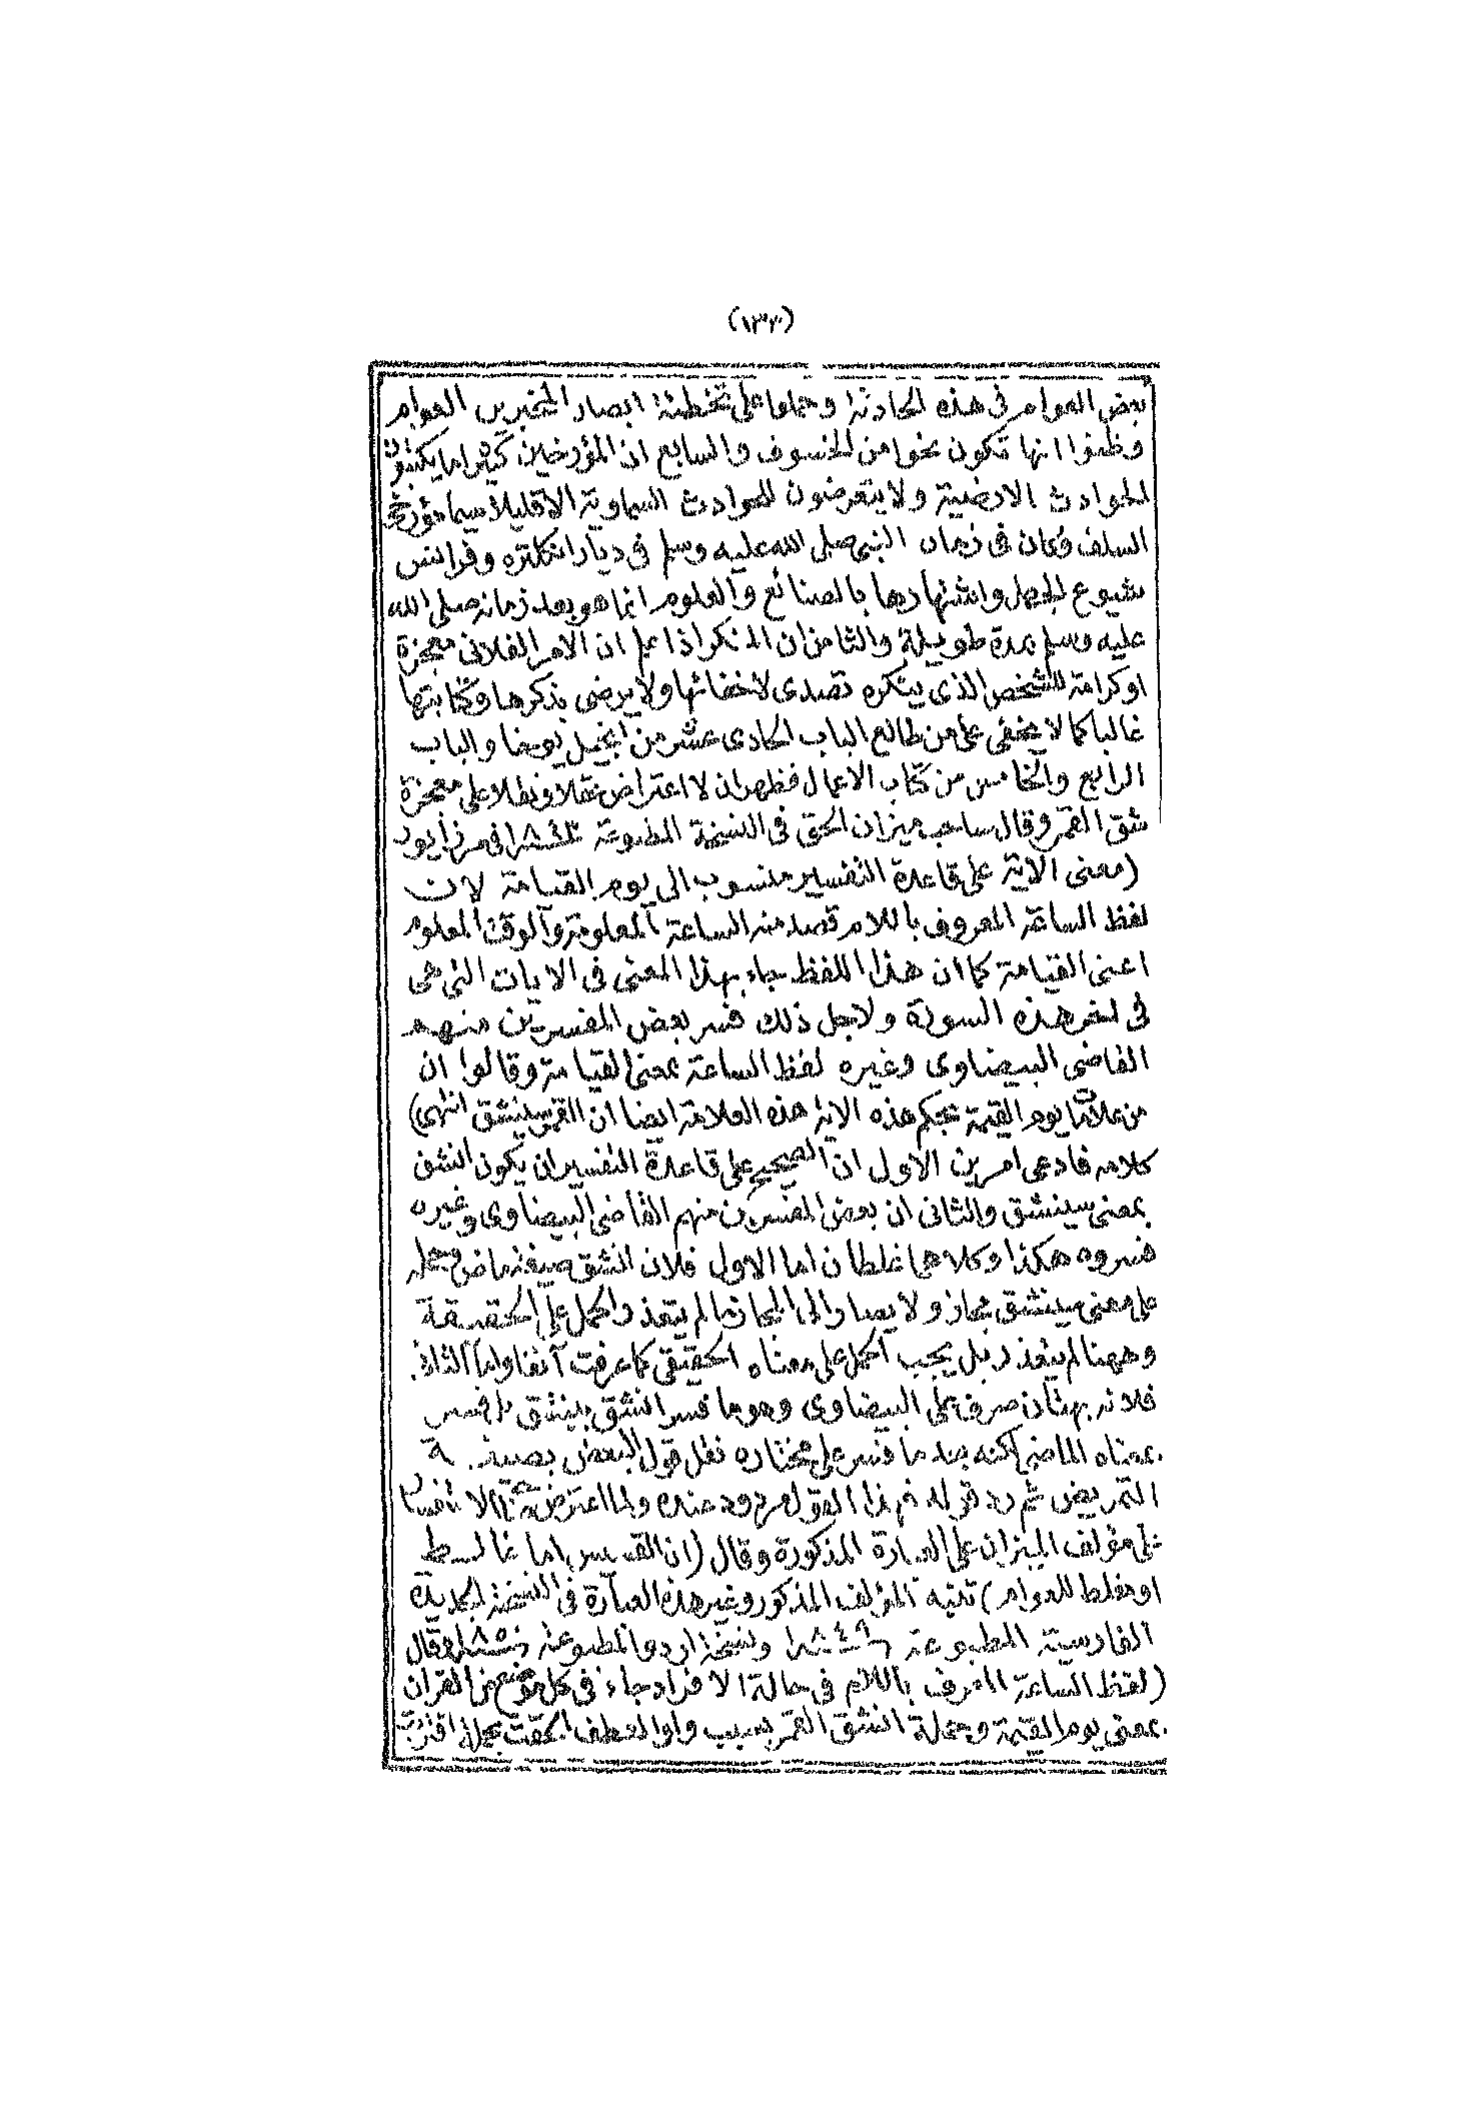 (١٣٣)
بعض العوام فى هذه الحادثة وحملوا على تخطئة ابصار المخبرين العوام
وظنوا انها تكون نحوا من الخسوف والسابع ان المؤرخين كثيرا ما يكتبون
الحوادث الارضية ولا يتعرضون للحوادث السماوية الا قليلا سيما مؤرخى
السلف وكان فى زمان النبى صلى الله عليه وسلم فى ديار انكلتره وفرانس
شيوع الجهل واشتهارها بالصنائع والعلوم انما هو بعد زمانه صلى الله
عليه وسلم بمدة طويلة والثامن ان المنكر اذا علم ان الامر الفلانى معجزة
او كرامة للشخص الذى ينكره تصدى لاخفائها ولا يرضى بذكرها وكتابتها
غالبا كما لا يخفى على من طالع الباب الحادى عشر من انجيل يوحنا والباب
الرابع والخامس من كتاب الاعمال فظهر ان لا اعتراض عقلا ونقلا على معجزة
شق القمر وقال صاحب ميزان الحق فى النسخة المطبوعة ١٨٤٣ فى مرزابور
(معنى الاية على قاعدة التفسير منسوب الى يوم القيامة لان
لفظ الساعة المعروف باللام قصد منه الساعة المعلومة والوقت المعلوم
اعنى القيامة كما ان هذا اللفظ جاء بهذا المعنى فى الايات التى هى
فى اخر هذه السورة ولاجل ذلك فسر بعض المفسرين منهم
القاضى البيضاوى وغيره لفظ الساعة بمعنى القيامة وقالوا ان
من علامات يوم القيمة بحكم هذه الاية هذه العلامة ايضا ان القمر سينشق انتهى)
كلامه فادعى امرين الاول ان الصحيح على قاعدة التفسير ان يكون انشق
بمعنى سينشق والثانى ان بعض المفسرين منهم القاضى البيضاوى وغيره
فسروه هكذا وكلاهما غلطان اما الاول فلان انشق صيغة ماض وحمله
على معنى سينشق مجاز ولا يصار الى المجاز ما لم يتعذر الحمل على الحقيقة
وههنا لم يتعذر بل يجب الحمل على معناه الحقيقى كما عرفت آنفا واما الثانى
فلانه بهتان صرف على البيضاوى وهو ما فسر انشق بينشق بل فسر
بمعناه الماضى لكنه بعد ما فسر على مختاره نقل قول البعض بصيغة
التمريض ثم رد قوله فهذا القول مردود عنده ولما اعترض صاحب الاستفسار
على مؤلف الميزان على العبارة المذكورة وقال (ان القسيس اما غالط
او مغلط للعوام) تنبه المؤلف المذكور وغير هذه العبارة فى النسخة الجديدة
الفارسية المطبوعة ١٨٤٩ ونسخة اردو المطبوعة ١٨٥٠ وقال
(لفظ الساعة المعرف باللام فى حالة الافراد جاء فى كل موضع من القرآن
بمعنى يوم القيمة وجملة انشق القمر بسبب واو العطف الحقت بجملة اقتربت